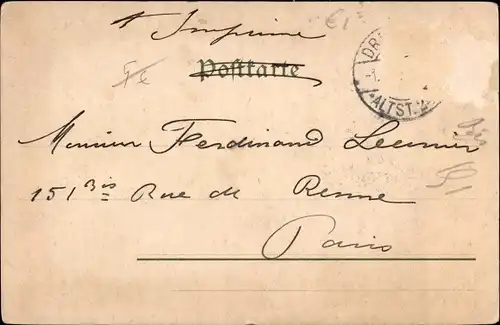 Imprimé
Postkarte
DR
ALTST.
Monsieur Ferdinand Leunier
151 Bis Rue de Renne
Paris